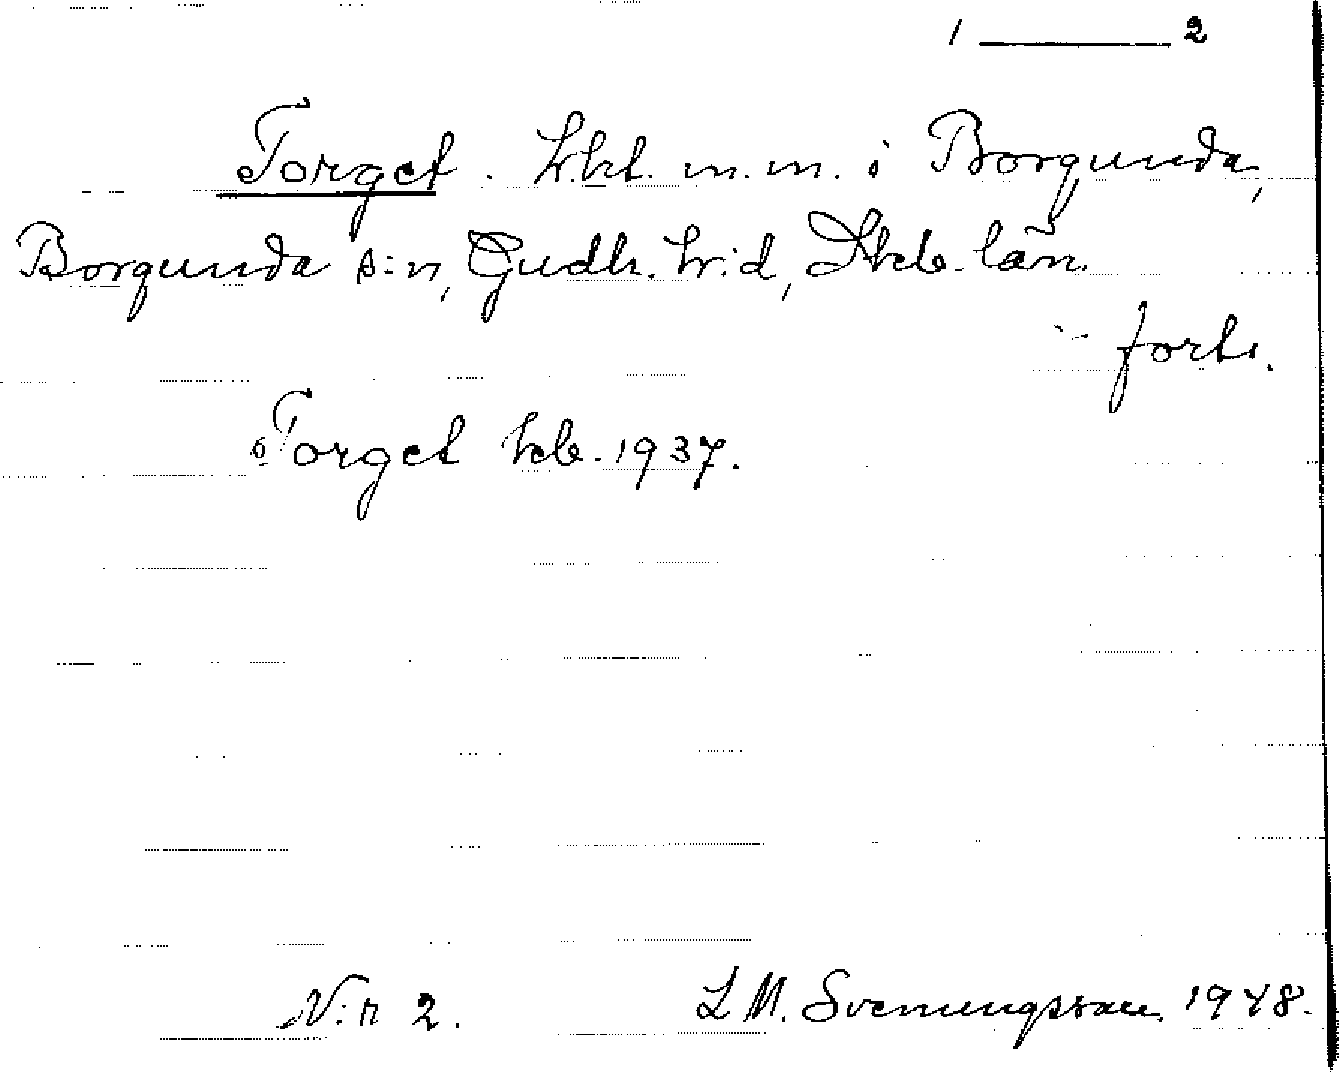 1 — 2
Torget. m.m. i Borgunda,
Borgunda s:n, Gudh. h:d, Skb. län.
forts.
Torget 1937.
N:r 2. L M. Svenungsson 1948.